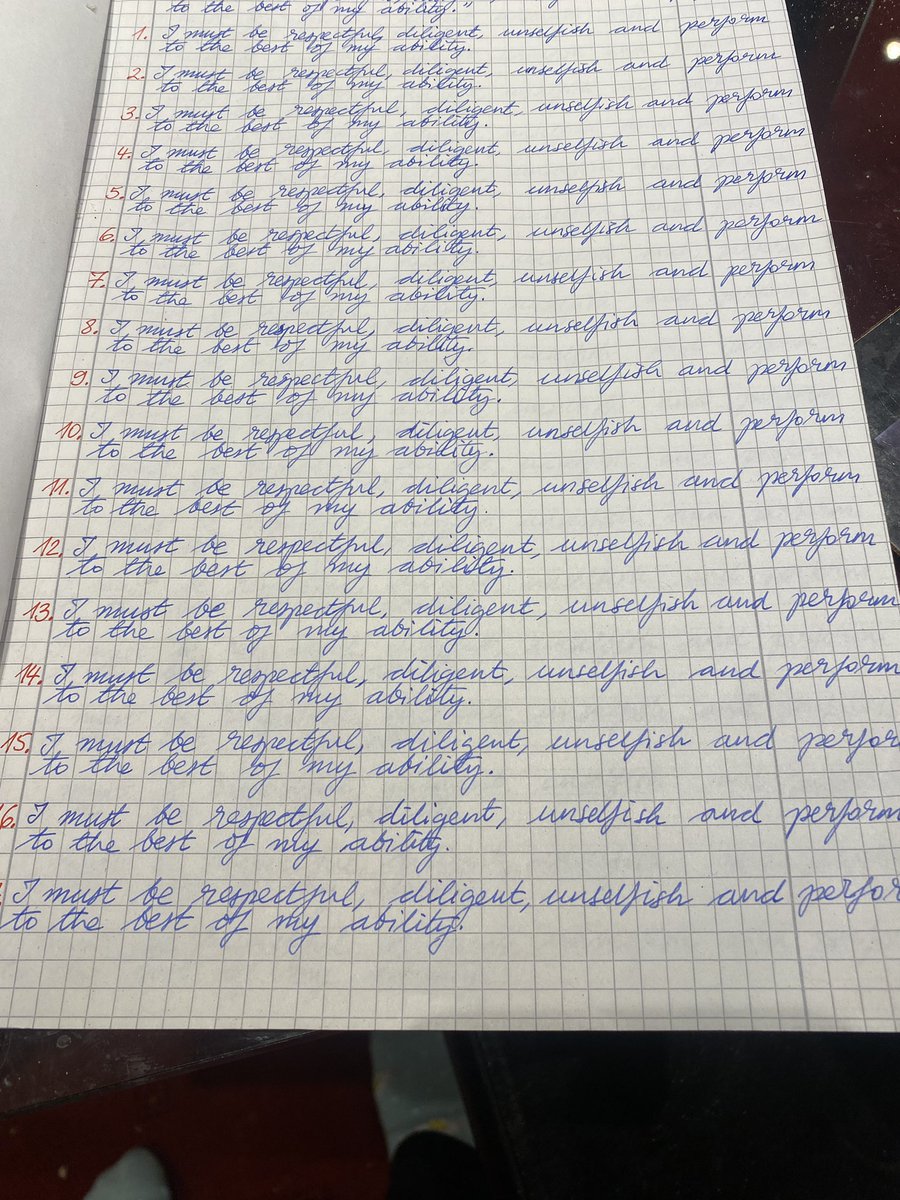 to the best of my ability."
1. I must be respectful, diligent, unselfish and perform
to the best of my ability.
2. I must be respectful, diligent, unselfish and perform
to the best of my ability.
3. I must be respectful, diligent, unselfish and perform
to the best of my ability.
4. I must be respectful, diligent, unselfish and perform
to the best of my ability.
5. I must be respectful, diligent, unselfish and perform
to the best of my ability.
6. I must be respectful, diligent, unselfish and perform
to the best of my ability.
7. I must be respectful, diligent, unselfish and perform
to the best of my ability.
8. I must be respectful, diligent, unselfish and perform
to the best of my ability.
9. I must be respectful, diligent, unselfish and perform
to the best of my ability.
10. I must be respectful, diligent, unselfish and perform
to the best of my ability.
11. I must be respectful, diligent, unselfish and perform
to the best of my ability.
12. I must be respectful, diligent, unselfish and perform
to the best of my ability.
13. I must be respectful, diligent, unselfish and perform
to the best of my ability.
14. I must be respectful, diligent, unselfish and perform
to the best of my ability.
15. I must be respectful, diligent, unselfish and perfor
to the best of my ability.
6. I must be respectful, diligent, unselfish and perform
to the best of my ability.
I must be respectful, diligent, unselfish and perfor
to the best of my ability.